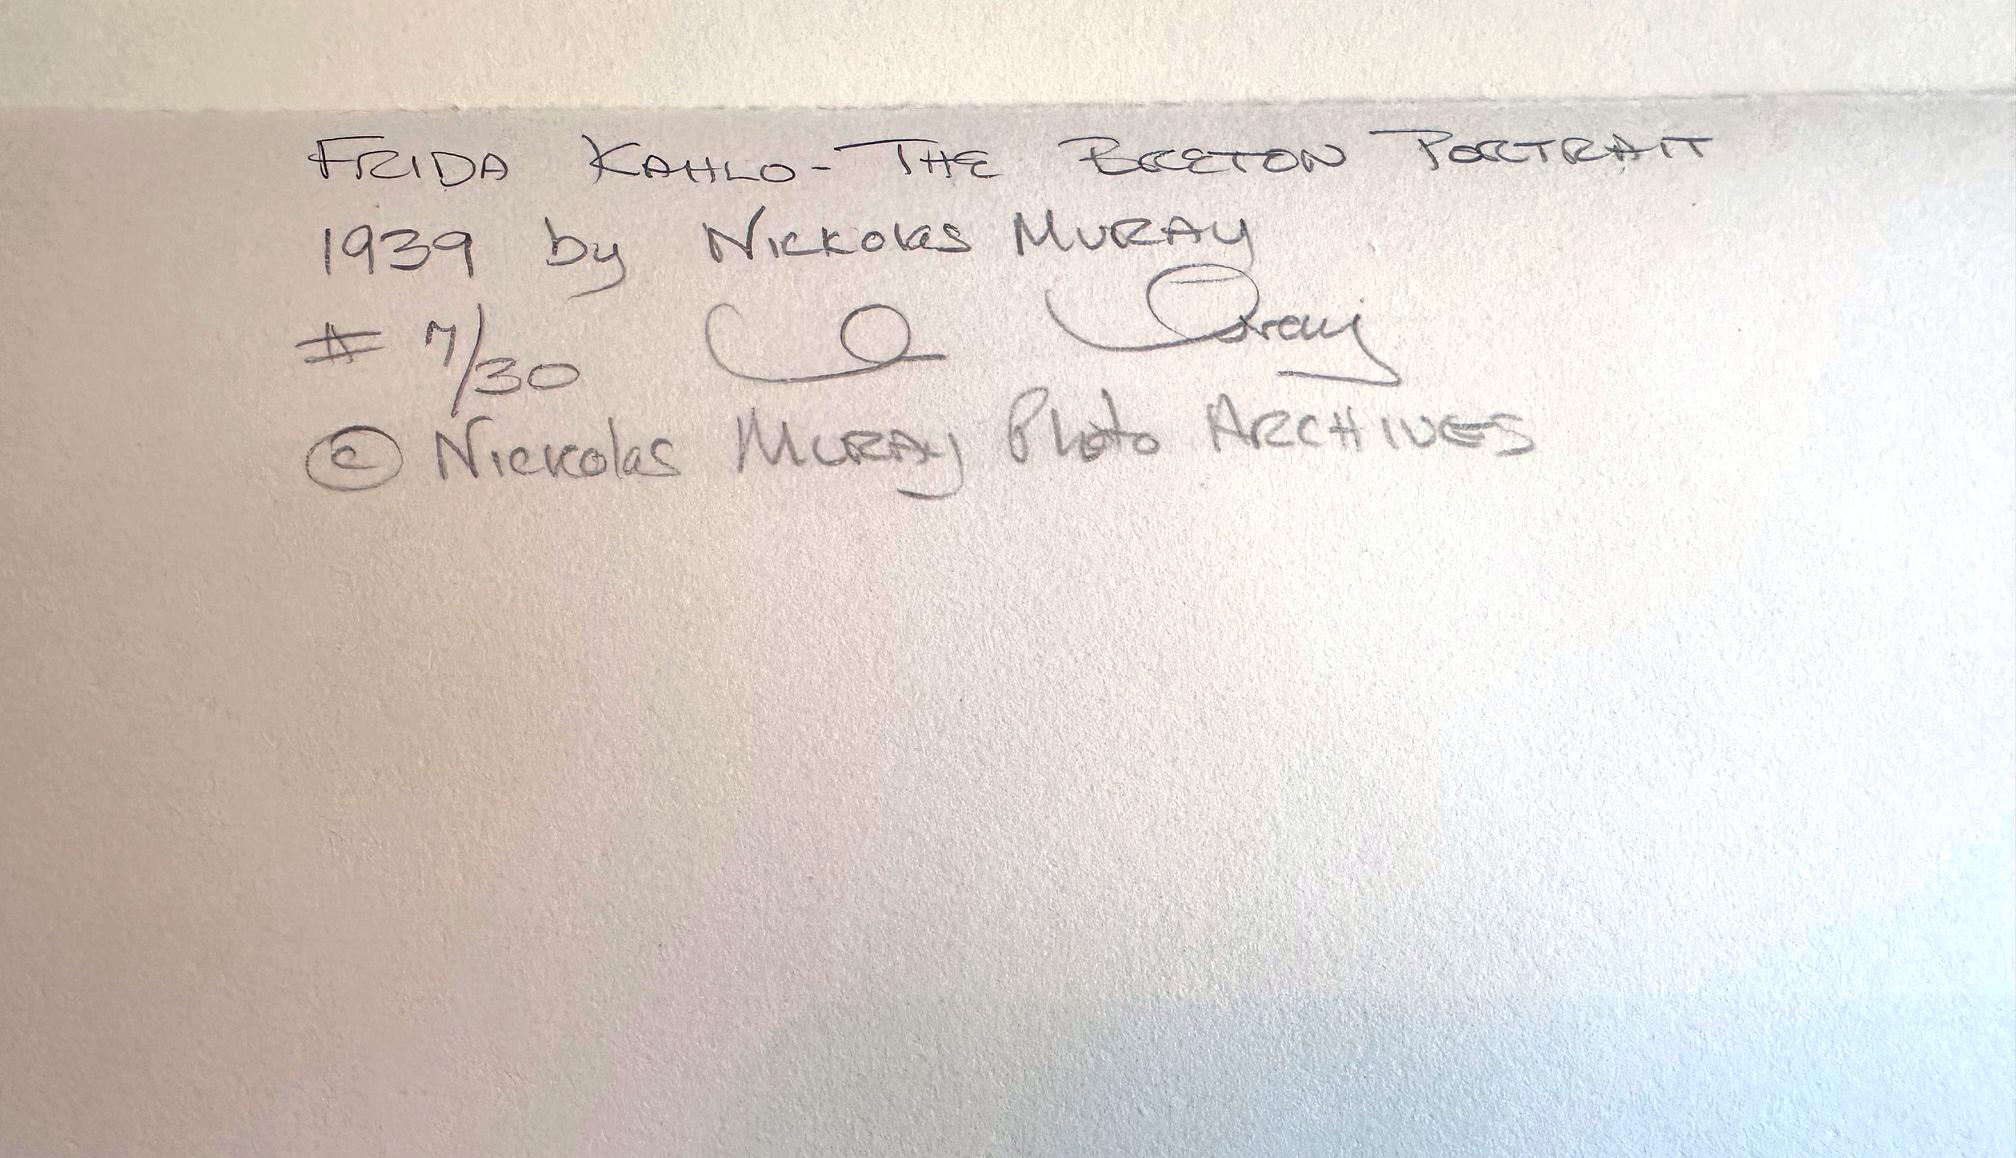 FRIDA KAHLO - THE BRETON PORTRAIT
1939 by NICKOLAS MURAY
# 7/30
© NICKOLAS MURAY Photo ARCHIVES